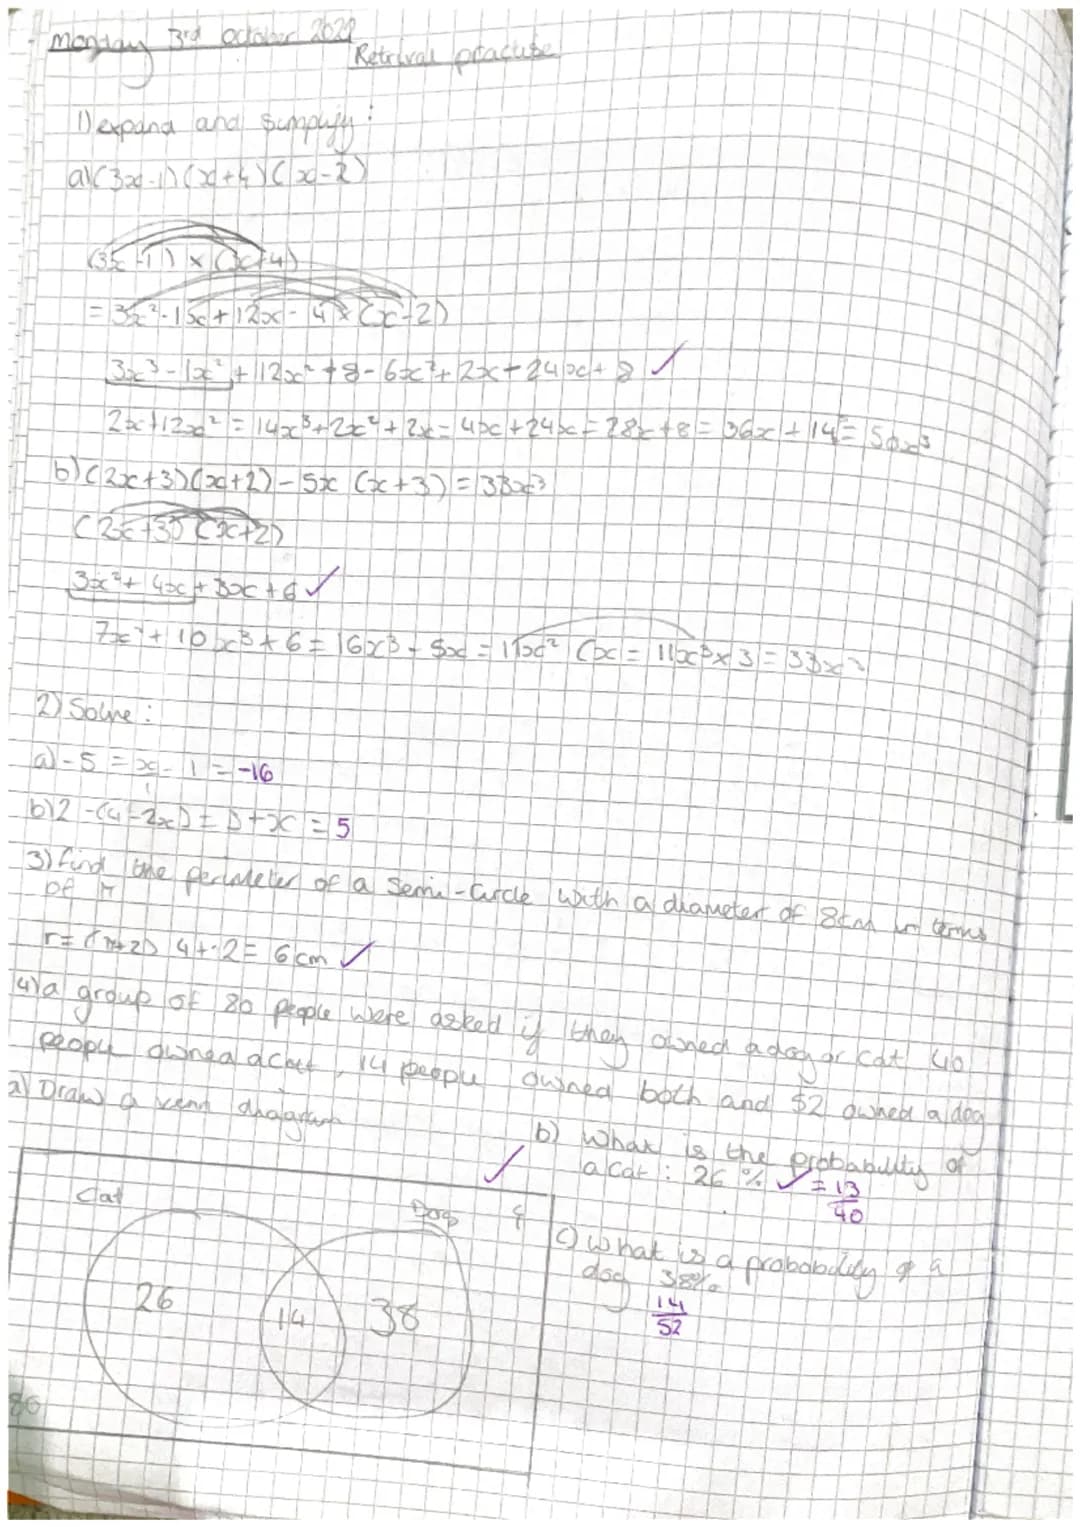 monday 3rd october 2022
Retrival practise
1) expand and simplify :
a) (3x-1) (x+4) (x-2)
(3x-1) x (x+4)
= 3x²-1x+12x-4 x (x-2)
3x³-1x²+12x²+8-6x²+2x+24x+8 ✓
2x+12x² = 14x³+2x²+2x=4x+24x=28x+8=36x+14=50x³
b) (2x+3)(x+2)-5x (x+3) = 33x³
(2x+3) (x+2)
3x²+4x+3x+6 ✓
7x²+10x³+6=16x³-5x=11x² (x=11x³x3=33x³
2) Solve :
a) -5 = x-1 = -16
b) 2-(4-2x) = + x = 5
3) find the perimeter of a semi-circle with a diameter of 8cm in terms
of π
r= 4+2= 6cm ✓
4) a group of 80 people were asked if they owned a dog or cat 40
people owned a cat, 14 people owned both and 52 owned a dog
a) Draw a venn diagram
b) what is the probability of
a cat : 26% ✓ = 13/40
Cat
Dog
26
14
38
80
c) what is a probability of a
dog 38%
14/52